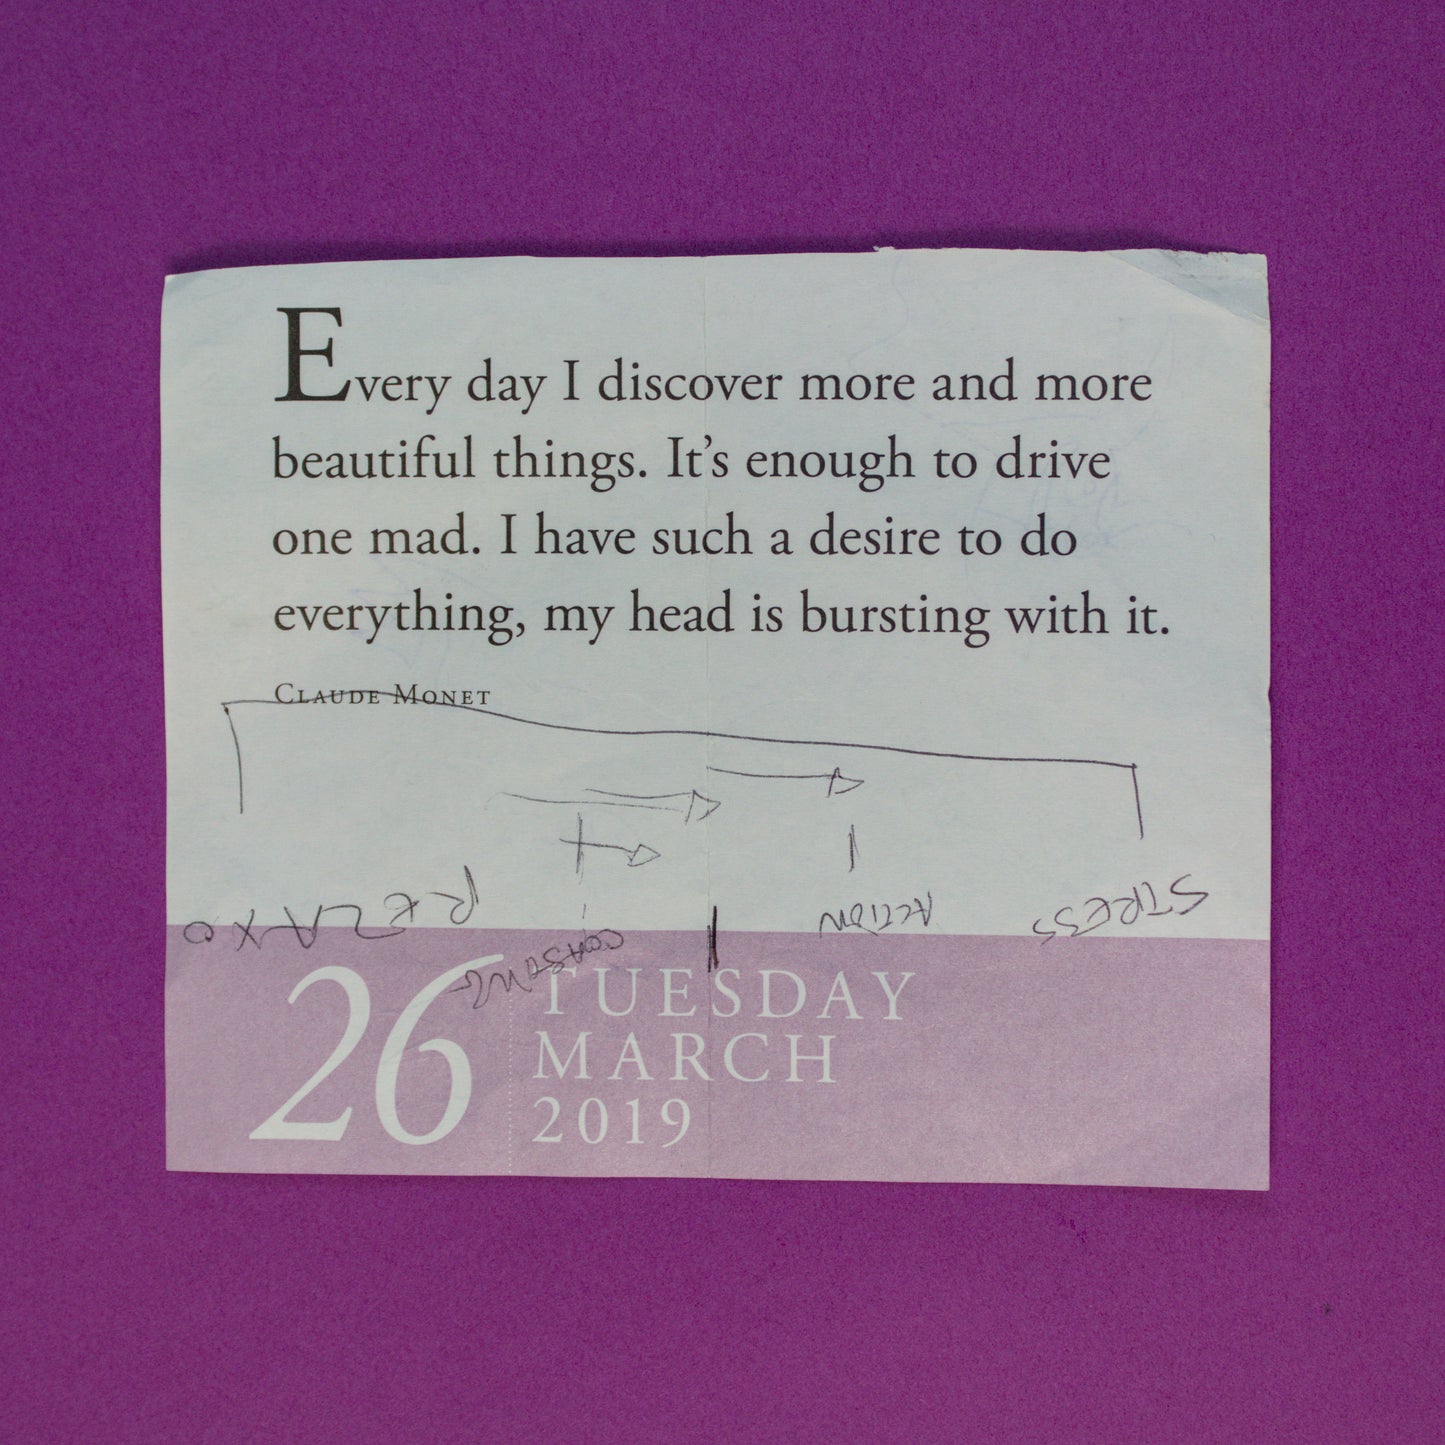 Every day I discover more and more
beautiful things. It's enough to drive
one mad. I have such a desire to do
everything, my head is bursting with it.
Claude Monet
STRESS
ACTION
RELAXO
26
TUESDAY
MARCH
2019